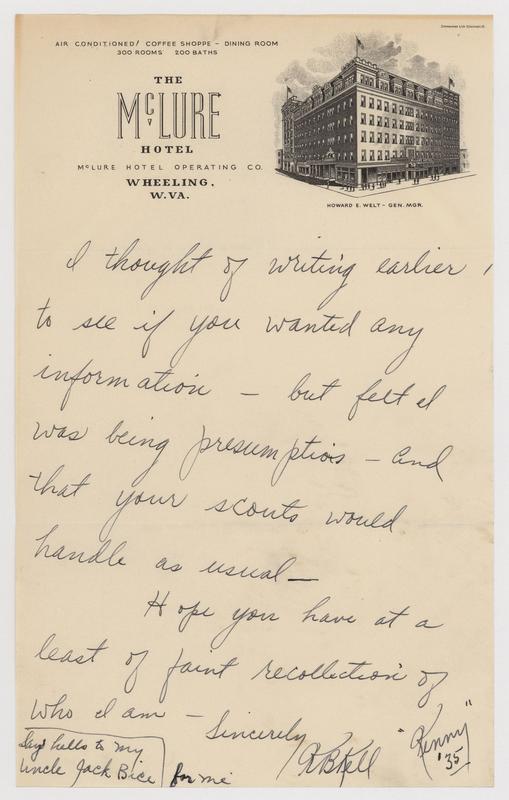 AIR CONDITIONED/ COFFEE SHOPPE - DINING ROOM
300 ROOMS 200 BATHS
THE
McLURE
HOTEL
McLURE HOTEL OPERATING CO.
WHEELING,
W.VA.
HOWARD E. WELT - GEN. MGR.
I thought of writing earlier,
to see if you wanted any
information - but felt I
was being presumptios - and
that your scouts would
handle as usual -
Hope you have at a
least of faint recollection of
who I am - Sincerely
"Kenny"
'35
Say hello to my
Uncle Jack Bice for me